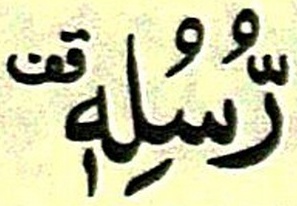 رُّسُلِهٖ ۟قف